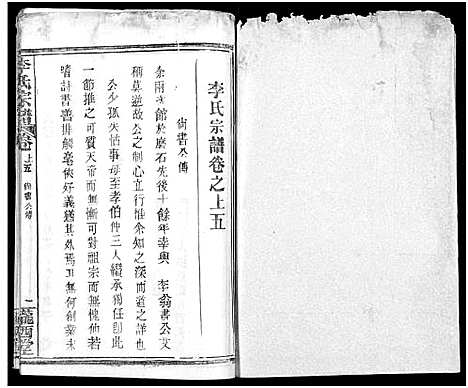 李氏宗譜卷之上五
尚書公傳
余兩次館於磨石先後十餘年幸與 李翁書公文
稱莫逆故公之制心立行惟余知之深而道之詳也
公少孤失怙事母至孝伯仲三人繼承獨任卽此
一節推之可質天帝而無慚可對祖宗而無愧他若
嗜詩書善排解毫俠好義猶其然焉丑無何創業未
李氏宗譜 卷上五 尚書公傳 一 隴西堂